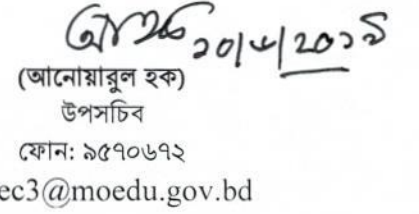 ২০/৬/২০১৯
(আনোয়ারুল হক)
উপসচিব
ফোন: ৯৫৭০৬৭২
ec3@moedu.gov.bd